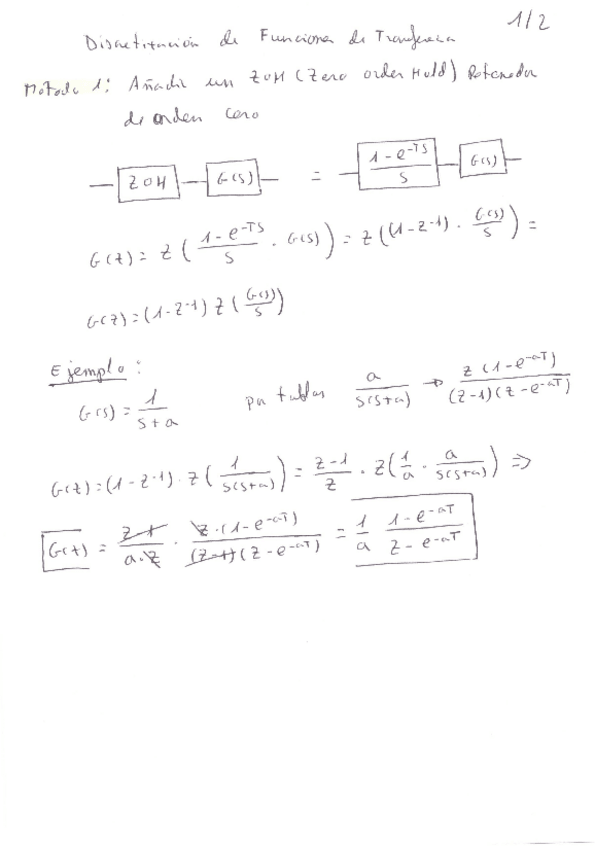 1/2
Discretización de Funciones de Transferencia
Método 1: Añadir un ZOH (Zero order Hold) Retenedor
de orden cero
ZOH G(s) = 1-e^-TS / S G(s)
G(z) = Z ( 1-e^-TS / S · G(s) ) = Z ( (1-z^-1) · G(s) / S ) =
G(z) = (1-z^-1) Z ( G(s) / S )
Ejemplo:
G(s) = 1 / S+a por tablas a / S(S+a) → z (1-e^-aT) / (z-1)(z-e^-aT)
G(z) = (1-z^-1) · Z ( 1 / S(S+a) ) = z-1 / z · Z ( 1/a · a / S(S+a) ) ⇒
G(z) = z-1 / a·z · z·(1-e^-aT) / (z-1)(z-e^-aT) = 1/a 1-e^-aT / z-e^-aT